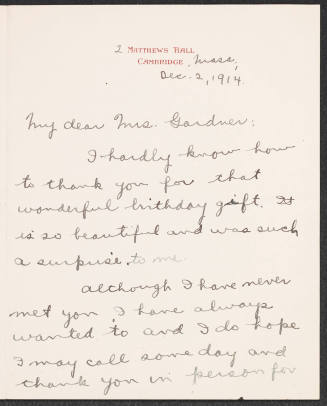 2 MATTHEWS HALL
CAMBRIDGE, Mass,
Dec. 2, 1914.
My dear Mrs. Gardner;
I hardly know how
to thank you for that
wonderful birthday gift. It
is so beautiful and was such
a surprise to me.
Although I have never
met you I have always
wanted to and I do hope
I may call some day and
thank you in person for